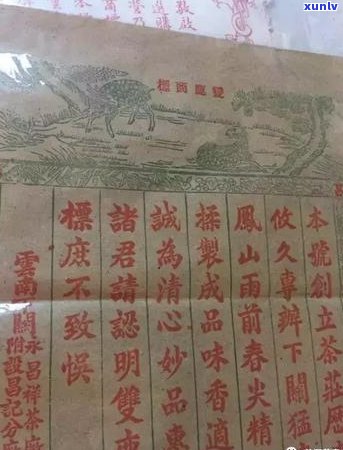 xunlv
敬啟
雙鹿商標
本號創立茶莊歷
攸久專辦下關猛
鳳山雨前春尖精
揉製成品味香適
誠為清心妙品惠
諸君請認明雙
標庶不致悞
雲南下關永昌祥茶廠
附設昌記分廠